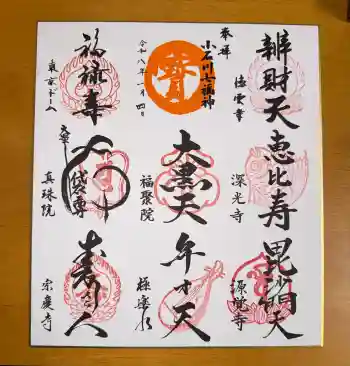 奉拝
小石川七福神
令和八年一月四日
辨財天
徳雲寺
恵比寿
深光寺
毘沙門天
源覚寺
大黒天
福聚院
弁才天
極楽水
福禄寿
東京ドーム
布袋尊
真珠院
寿老人
宗慶寺